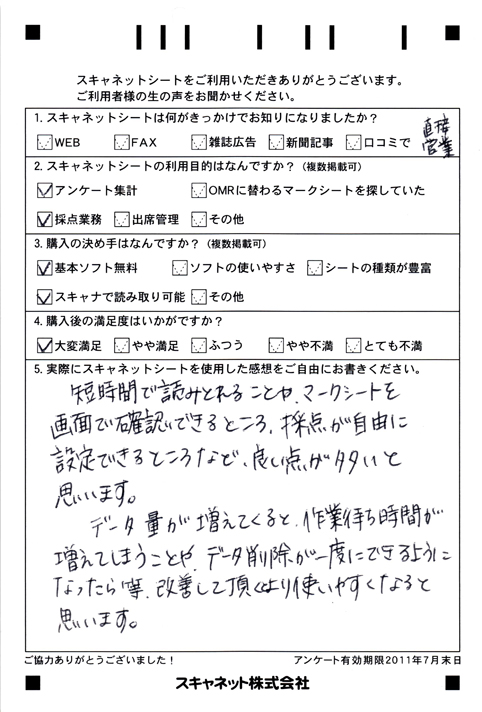 スキャネットシートをご利用いただきありがとうございます。
ご利用者様の生の声をお聞かせください。
1. スキャネットシートは何がきっかけでお知りになりましたか？
WEB FAX 雑誌広告 新聞記事 口コミで 直接営業
2. スキャネットシートの利用目的はなんですか？（複数掲載可）
アンケート集計 OMRに替わるマークシートを探していた
採点業務 出席管理 その他
3. 購入の決め手はなんですか？（複数掲載可）
基本ソフト無料 ソフトの使いやすさ シートの種類が豊富
スキャナで読み取り可能 その他
4. 購入後の満足度はいかがですか？
大変満足 やや満足 ふつう やや不満 とても不満
5. 実際にスキャネットシートを使用した感想をご自由にお書きください。
短時間で読みとれることや、マークシートを
画面で確認できるところ、採点が自由に
設定できるところなど、良い点が多いと
思います。
データ量が増えてくると、作業待ち時間が
増えてしまうことや、データ削除が一度にできるように
なったら等、改善して頂くとより使いやすくなると
思います。
ご協力ありがとうございました！ アンケート有効期限2011年7月末日
スキャネット株式会社